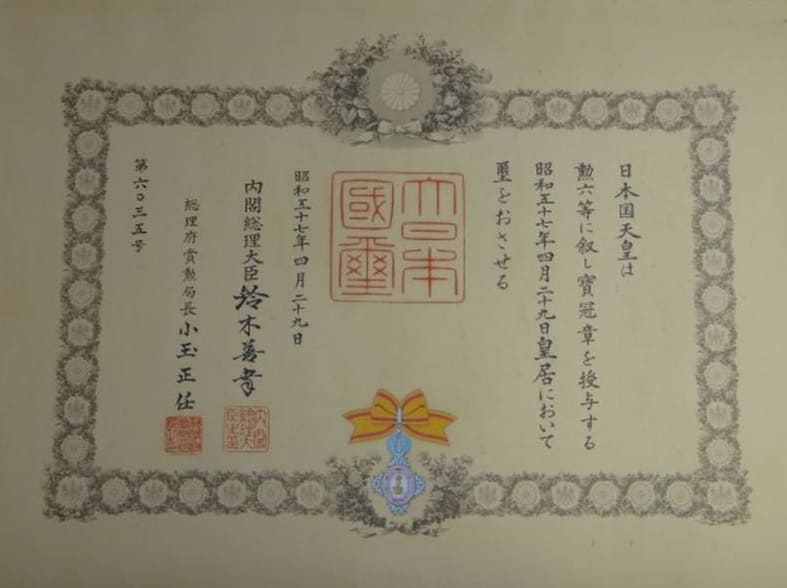 日本国天皇は
勲六等に叙し寶冠章を授与する
昭和五十七年四月二十九日皇居において
璽をおさせる
大日本
國璽
昭和五十七年四月二十九日
内閣総理大臣 鈴木善幸
総理府賞勲局長 小玉正任
第六〇三五号